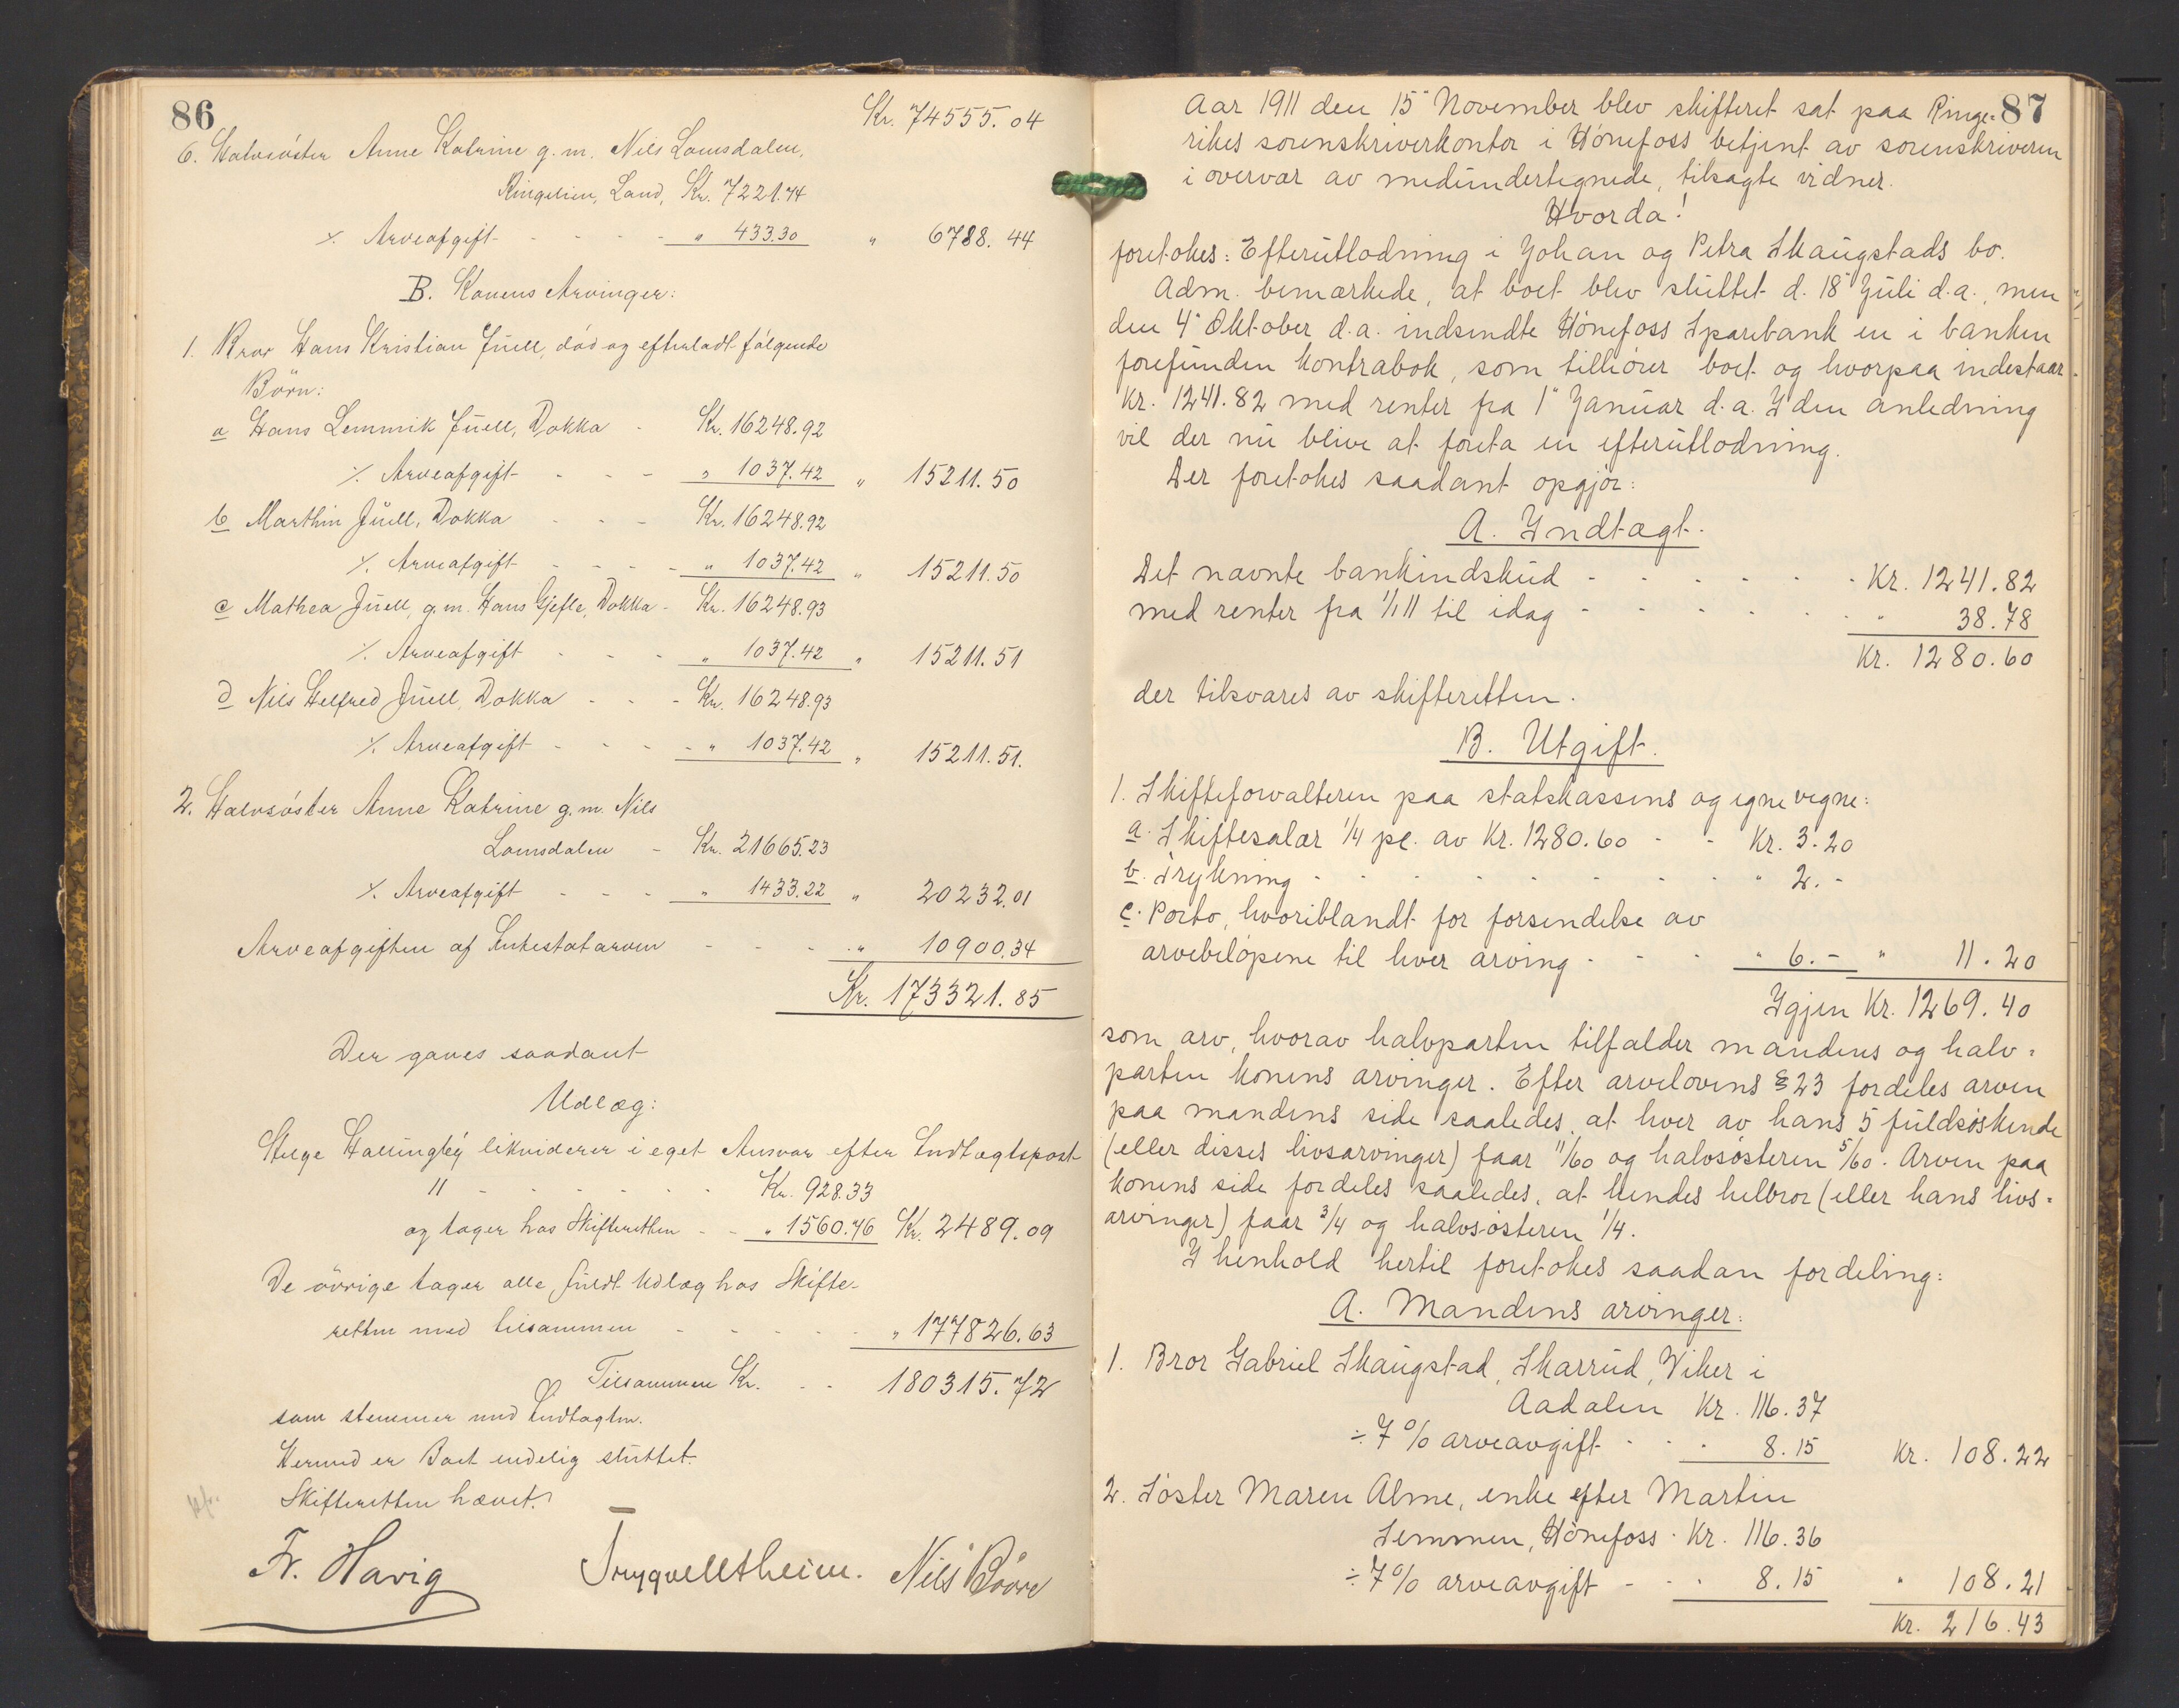 86
Kr. 74555.04
6. Halvsöster Anne Katrine g.m. Nils Lomsdalen,
Ringelien, Land, Kr. 7221.74
٪ Arveafgift - - - - " 433.30 " 6788.44
B. Konens Arvinger:
1. Bror Hans Kristian Juell, död og efterladt fölgende
Börn:
a Hans Lemmik Juell, Dokka - Kr. 16248.92
٪ Arveafgift - - - " 1037.42 " 15211.50
b Marthin Juell, Dokka - - - Kr. 16248.92
٪ Arveafgift - - - - " 1037.42 " 15211.50
c Mathea Juell, g.m. Hans Gjefle, Dokka - Kr. 16248.93
٪ Arveafgift - - - " 1037.42 " 15211.51
d Nils Helfred Juell, Dokka - - - Kr. 16248.93
٪ Arveafgift - - - - " 1037.42 " 15211.51.
2. Halvsöster Anne Katrine g.m. Nils
Lomsdalen - Kr. 21665.23
٪ Arveafgift - - - " 1433.22 " 20232.01
Arveafgiften af Intestatarven - - - - " 10900.34
Kr. 173321.85
Der gaves saadant
Udlæg:
Helge Hallingby likviderer i eget Ansvar efter Indtægtspost
11 - - - - - - Kr. 928.33
og tager hos Skifteretten - - " 1560.76 Kr. 2489.09
De övrige tager alle fuldt Udlæg hos Skifte-
retten med tilsammen - - - - - " 177826.63
Tilsammen Kr. - - 180315.72
som stemmer med Indtægten.
Hermed er Boet endelig sluttet.
Skifteretten hævet.
Fr. Havig NilsBöore
87
Aar 1911 den 15" November blev skifteret sat paa Ringe-
rikes sorenskriverkontor i Hönefoss betjent av sorenskriveren
i overvær av medundertegnede, tilsagte vidner.
Hvorda!
foretokes: Efterutlodning i Johan og Petra Skaugstads bo.
Adm. bemærkede, at boet blev sluttet d. 18" Juli d.a., men
den 4" Oktober d.a. indsendte Hönefoss Sparebank en i banken
forefunden kontrabok, som tilhörer boet og hvorpaa indestaar
Kr. 1241.82 med renter fra 1" Januar d.a. I den anledning
vil der nu blive at foreta en efterutlodning.
Der foretokes saadant opgjör:
A. Indtægt.
Det nævnte bankindskud - - - - - - Kr. 1241.82
med renter fra 1/1 11 til idag - - - - - - " 38.78
Kr. 1280.60
der tilsvares av skifteretten.
B. Utgift.
1. Skifteforvalteren paa statskassens og egne vegne:
a. Skiftesalær 1/4 pc. av Kr. 1280.60 - - Kr. 3.20
b. Trykning - - - - - - - - " 2.-
c. Porto, hvoriblandt for forsendelse av
arvebelöpene til hver arving - - - " 6.- " 11.20
Igjen Kr. 1269.40
som arv, hvorav halvparten tilfalder mandens og halv-
parten konens arvinger. Efter arvelovens § 23 fordeles arven
paa mandens side saaledes, at hver av hans 5 fuldsöskende
(eller disses livsarvinger) faar 11/60 og halvsösteren 5/60. Arven paa
konens side fordeles saaledes, at hendes helbror (eller hans livs-
arvinger) faar 3/4 og halvsösteren 1/4.
I henhold hertil foretokes saadan fordeling:
A. Mandens arvinger:
1. Bror Gabriel Skaugstad, Skarrud, Viker i
Aadalen Kr. 116.37
÷ 7% arveavgift - - - 8.15 Kr. 108.22
2. Söster Maren Alme, enke efter Martin
Semmen, Hönefoss - Kr. 116.36
÷ 7% arveavgift - - - 8.15 " 108.21
Kr. 216.43